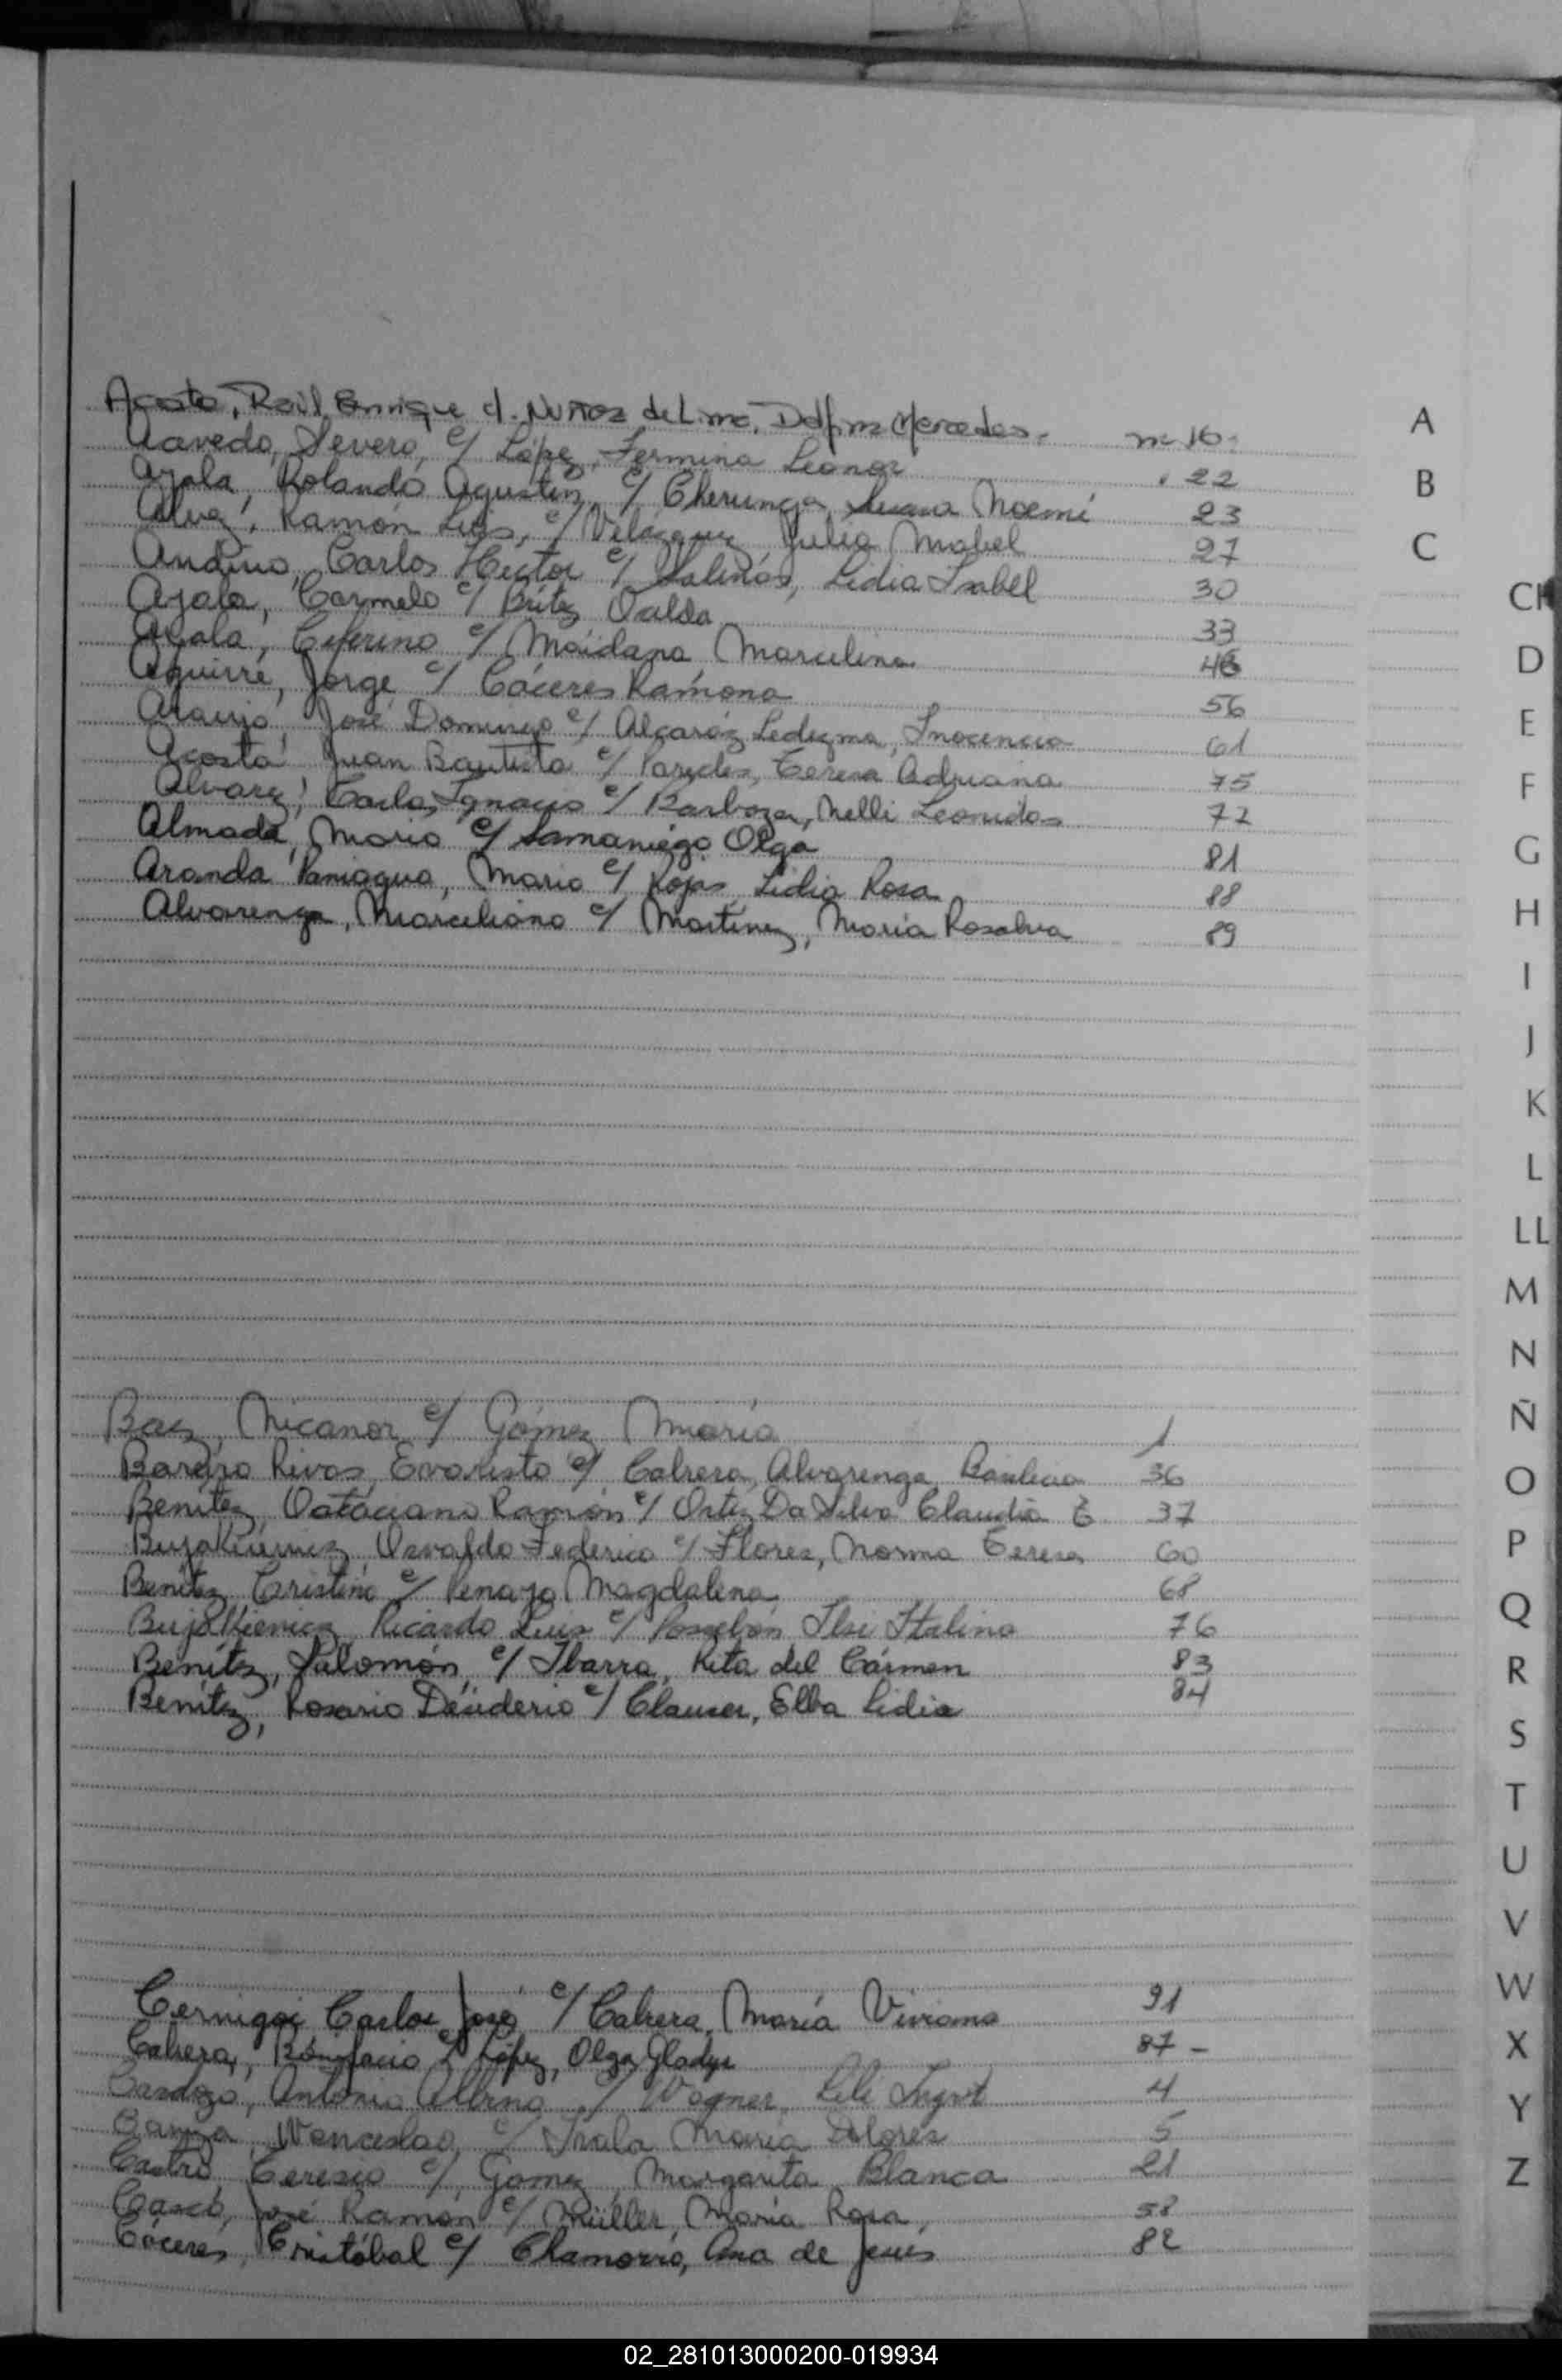 Acosta, Raúl Enrique c/. Nuñez de Lima, Delfina Mercedes. nº 16.
Acevedo, Severo, c/ López, Fermina Leonor . 22
Ayala, Rolando Agustín, c/ Cherunga, Susana Noemí 23
Alvez, Ramón Luis, c/ Velazquez, Julia Mabel 27
Andino, Carlos Hector c/ Salinas, Lidia Isabel 30
Ayala, Carmelo c/ Brítez Oralda 33
Ayala, Ceferino c/ Maidana, Marcelina
Aguirre, Jorge c/ Cáceres Ramona 56
Araujo, José Domingo c/ Alcaráz Ledezma, Inocencia 61
Acosta, Juan Bautista c/ Paredes, Teresa Adriana 75
Alvarez, Carlos Ignacio c/ Barboza, Nelli Leonidas 77
Almada, Mario c/ Samaniego Olga 81
Aranda Paniagua, Mario c/ Rojas, Lidia Rosa 88
Alvarenga, Marceliano c/ Martínez, María Rosalva 89
Baez, Nicanor c/ Gómez María 1
Bareiro Rivas, Evaristo c/ Cabrera, Alvarenga, Basilicia 36
Benítez, Ramón c/ Ortiz Da Silva Claudia E 37
Osvaldo Federico c/ Flores, Norma Teresa 60
Benítez, Cristino c/ Penayo Magdalena 68
Bujakievicz, Ricardo Luis c/ Ilse Italina 76
Benítez, Salomón, c/ Ibarra, Rita del Cármen 83
Benítez, Rosario Desiderio c/ Clauser, Elba Lidia 84
Cernigoi Carlos José c/ Cabrera, María Viviana 91
Cabrera, Bonifacio c/ López, Olga Gladys 87 -
Cardozo, Antonio Albino c/ Wagner, Lili Ingrid 4
Wenceslao, c/ Irala María Dolores 5
Castro, c/ Gomez, Margarita Blanca 21
José Ramón c/ Müller, María Rosa, 58
Cáceres, Cristóbal c/ Chamorro, Ana de Jesús 82
A
B
C
CH
D
E
F
G
H
I
J
K
L
LL
M
N
Ñ
O
P
Q
R
S
T
U
V
W
X
Y
Z
02_281013000200-019934